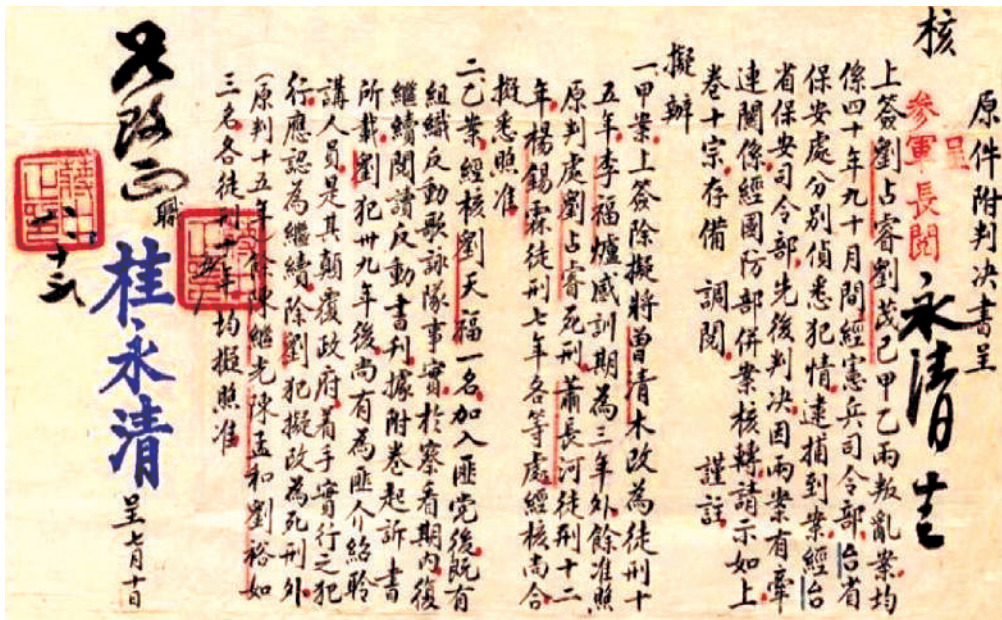 原件附判決書呈
核
呈
參軍長閱
永清
上簽劉占睿劉茂己甲乙兩叛亂案均
係四十年九十月間經憲兵司令部台省
保安處分別偵悉犯情逮捕到案經台
省保安司令部先後判決因兩案有牽
連關係經國防部併案核轉請示如上
卷十宗存備調閱 謹註
擬辦
一、甲案上簽除擬將曾清木改為徒刑十
五年李福爐感訓期為三年外餘准照
原判處劉占睿死刑蕭長河徒刑十二
年楊錫霖徒刑七年各等處經核尚合
擬悉照准
二、乙案經核劉天福一名加入匪党後既有
組織反動歌詠隊事實於察看期內復
繼續閱讀反動書刊據附卷起訴書
所載劉犯卅九年後尚有為匪介紹聆
講人員是其顛覆政府着手實行之犯
行應認為繼續除劉犯擬改為死刑外
(原判十五年)餘陳繼光陳孟和劉裕如
三名各徒刑十年均擬照准
職
桂永清
呈七月十日